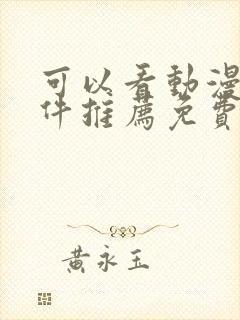 可以看動漫
件推薦免費
黃永玉